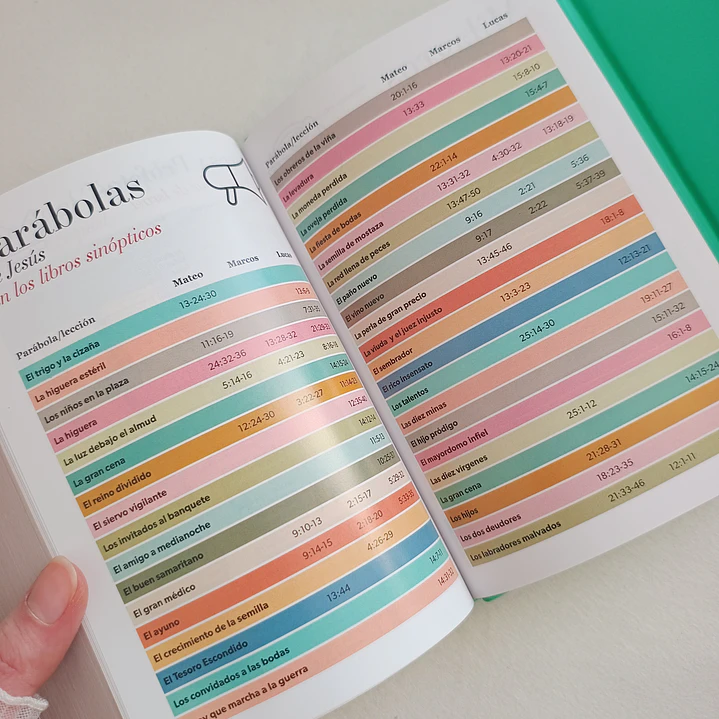 arábolas
e Jesús
n los libros sinópticos
Parábola/lección Mateo Marcos Lucas
El trigo y la cizaña 13-24:30
La higuera estéril 13:6-9
Los niños en la plaza 11:16-19 7:31-35
La higuera 24:32-36 13:28-32 21:29-33
La luz debajo el almud 5:14-16 4:21-23 8:16-18
La gran cena 14:15-24
El reino dividido 12:24-30 3:22-27 11:14-23
El siervo vigilante 12:35-40
Los invitados al banquete 14:12-14
El amigo a medianoche 11:5-13
El buen samaritano 10:25-37
El gran médico 9:10-13 2:15-17 5:29-32
El ayuno 9:14-15 2:18-20 5:33-35
El crecimiento de la semilla 4:26-29
El Tesoro Escondido 13:44
Los convidados a las bodas 14:7-11
ey que marcha a la guerra 14:31-32
Parábola/lección Mateo Marcos Lucas
Los obreros de la viña 20:1-16
La levadura 13:33 13:20-21
La moneda perdida 15:8-10
La oveja perdida 15:4-7
La fiesta de bodas 22:1-14
La semilla de mostaza 13:31-32 4:30-32 13:18-19
La red llena de peces 13:47-50
El paño nuevo 9:16 2:21 5:36
El vino nuevo 9:17 2:22 5:37-39
La perla de gran precio 13:45-46
La viuda y el juez injusto 18:1-8
El sembrador 13:3-23
El rico insensato 12:13-21
Los talentos 25:14-30
Las diez minas 19:11-27
El hijo pródigo 15:11-32
El mayordomo infiel 16:1-8
Las diez vírgenes 25:1-12
La gran cena 14:15-24
Los hijos 21:28-31
Los dos deudores 18:23-35
Los labradores malvados 21:33-46 12:1-11